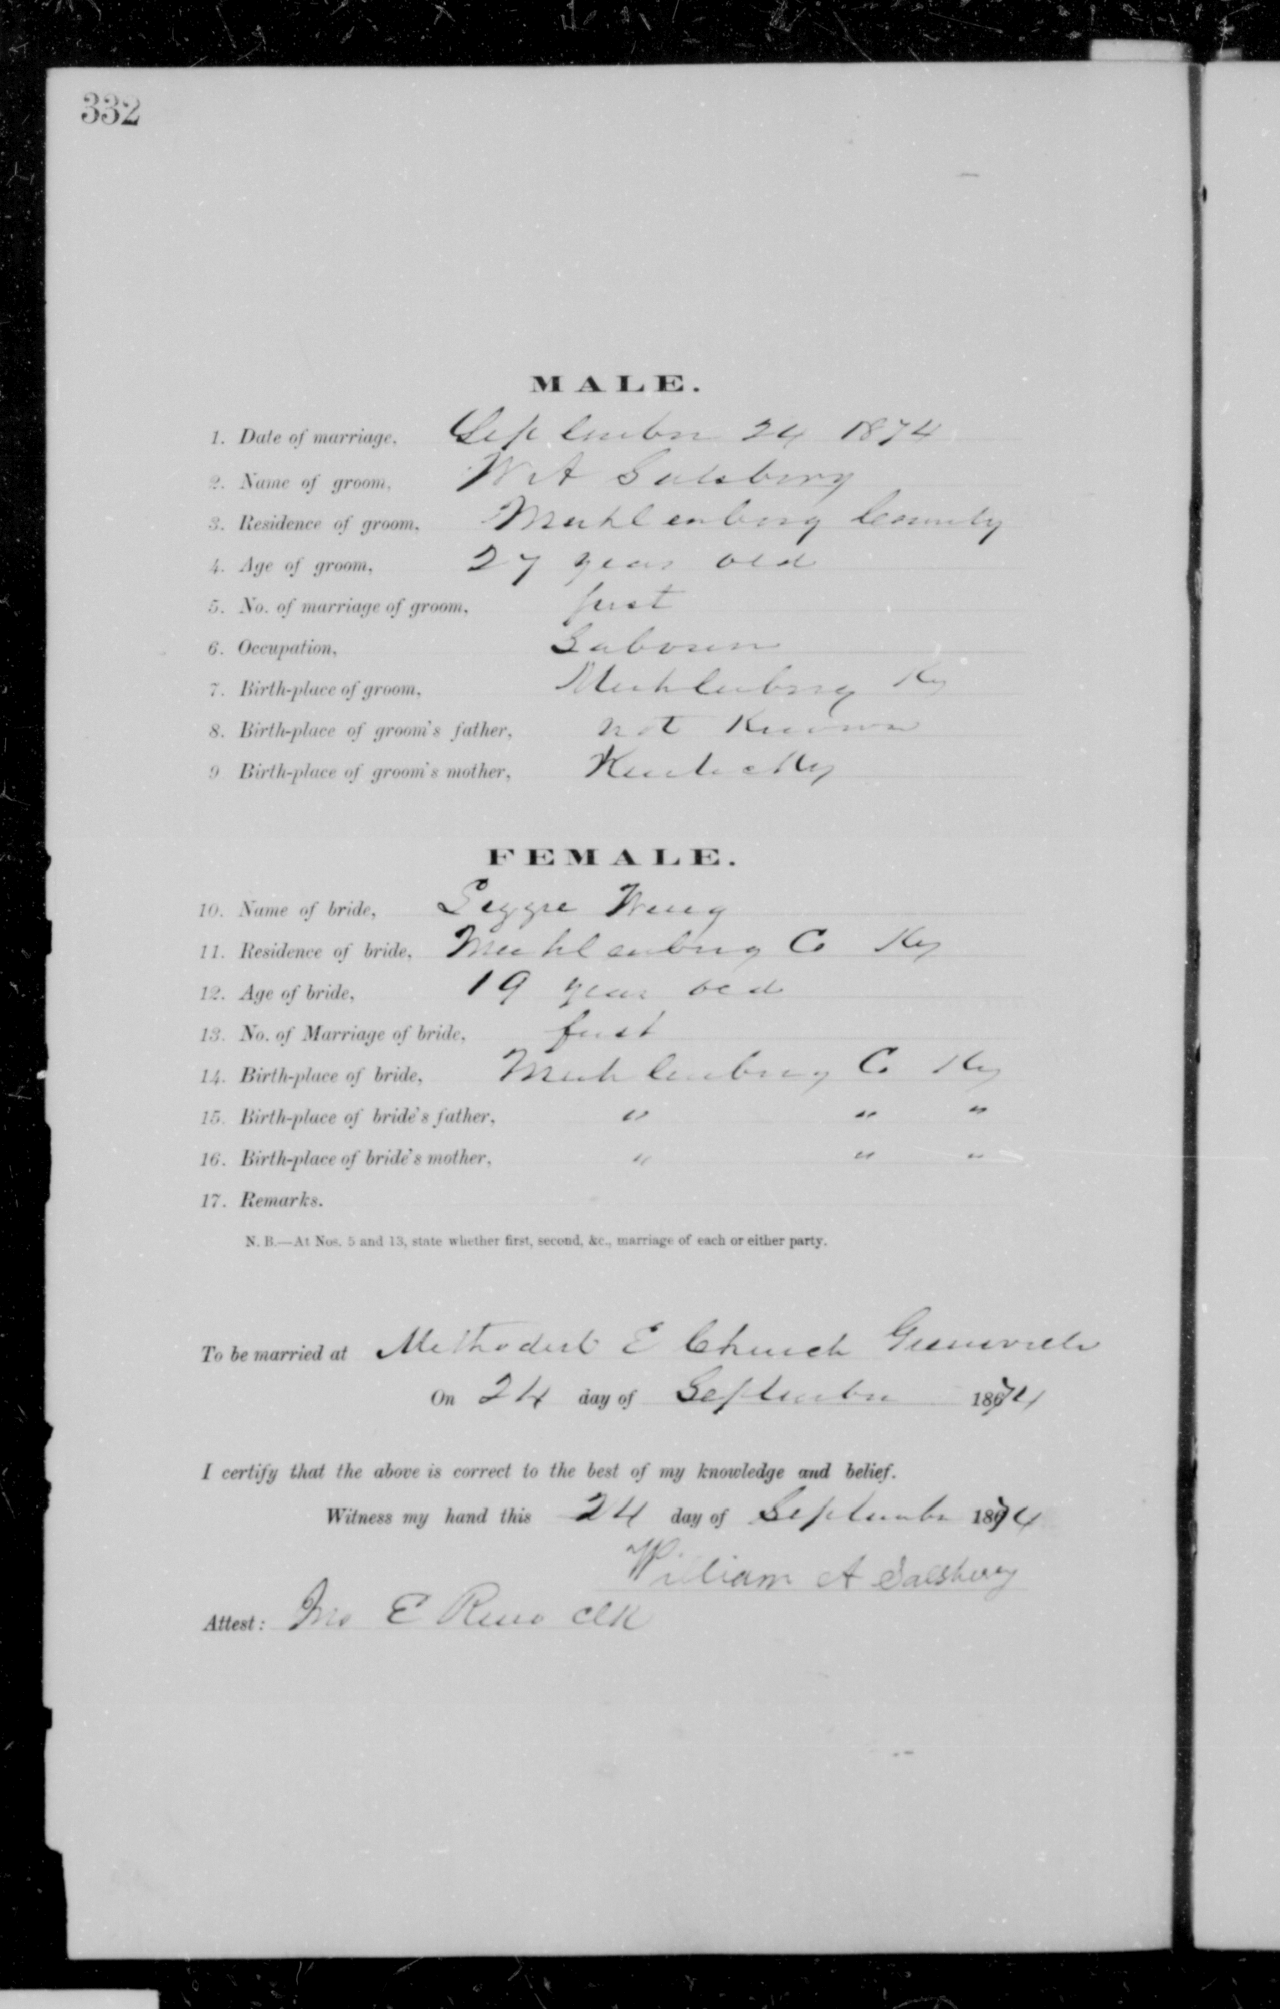 332
MALE.
1. Date of marriage, September 24 1874
2. Name of groom, W A Salsbury
3. Residence of groom, Muhlenburg County
4. Age of groom, 27 years old
5. No. of marriage of groom, first
6. Occupation, Laborer
7. Birth-place of groom, Muhlenburg Ky
8. Birth-place of groom's father, not Known
9 Birth-place of groom's mother, Kentucky
FEMALE.
10. Name of bride,
11. Residence of bride, Muhlenburg Co Ky
12. Age of bride, 19 years old
13. No. of Marriage of bride, first
14. Birth-place of bride, Muhlenburg Co Ky
15. Birth-place of bride's father, " " "
16. Birth-place of bride's mother, " " "
17. Remarks.
N. B.—At Nos. 5 and 13, state whether first, second, &c., marriage of each or either party.
To be married at Methodist E Church Greenville
On 24 day of September 1874
I certify that the above is correct to the best of my knowledge and belief.
Witness my hand this 24 day of September 1874
William A Salsbury
Attest: Jno E Reno Clk